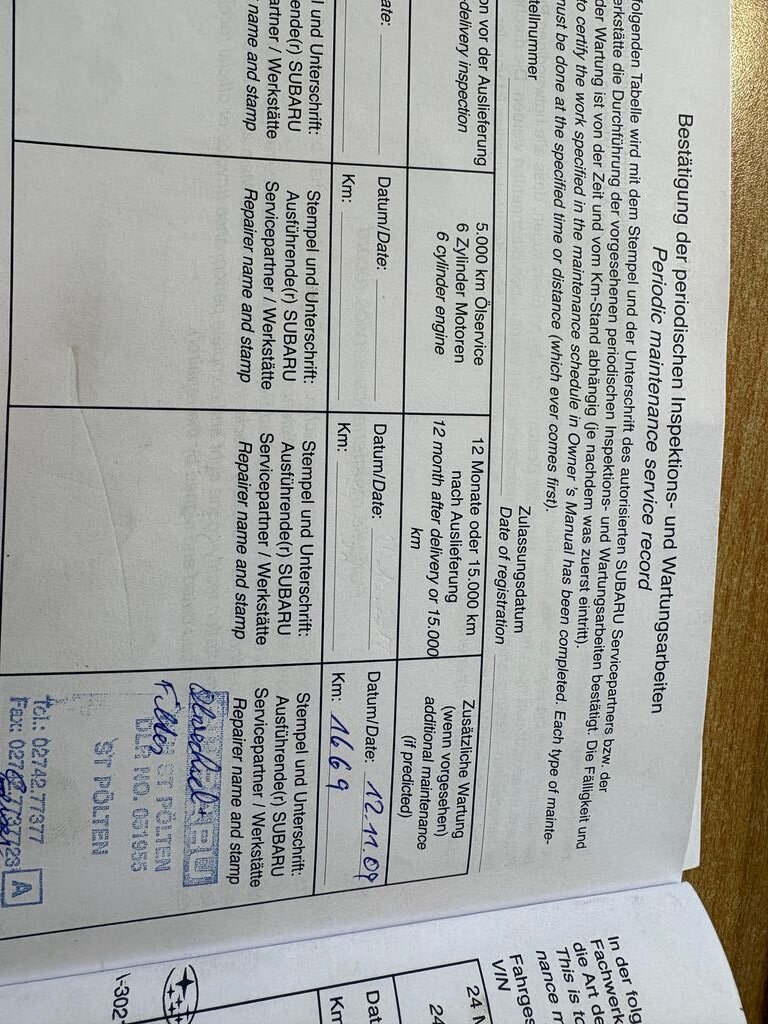 Bestätigung der periodischen Inspektions- und Wartungsarbeiten
Periodic maintenance service record
folgenden Tabelle wird mit dem Stempel und der Unterschrift des autorisierten SUBARU Servicepartners bzw. der
erkstätte die Durchführung der vorgesehenen periodischen Inspektions- und Wartungsarbeiten bestätigt. Die Fälligkeit und
der Wartung ist von der Zeit und vom Km-Stand abhängig (je nachdem was zuerst eintritt).
to certify the work specified in the maintenance schedule in Owner's Manual has been completed. Each type of mainte-
must be done at the specified time or distance (which ever comes first).
tellnummer
Zulassungsdatum
Date of registration
on vor der Auslieferung
delivery inspection
ate:
l und Unterschrift:
ende(r) SUBARU
artner / Werkstätte
name and stamp
5.000 km Ölservice
6 Zylinder Motoren
6 cylinder engine
Datum/Date:
Km:
Stempel und Unterschrift:
Ausführende(r) SUBARU
Servicepartner / Werkstätte
Repairer name and stamp
12 Monate oder 15.000 km
nach Auslieferung
12 month after delivery or 15.000
km
Datum/Date:
Km:
Stempel und Unterschrift:
Ausführende(r) SUBARU
Servicepartner / Werkstätte
Repairer name and stamp
Zusätzliche Wartung
(wenn vorgesehen)
additional maintenance
(if predicted)
Datum/Date: 12.11.09
Km: 1669
Stempel und Unterschrift:
Ausführende(r) SUBARU
Servicepartner / Werkstätte
Repairer name and stamp
Ölwechsel +
Filter
ST PÖLTEN
DLR NO. 051955
ST PÖLTEN
tel.: 02742.77377
Fax: 02742.7737723
A
In der folg
Fachwerk
die Art de
This is to
nance m
Fahrges
VIN
24 M
24
Dat
Km
\-302-